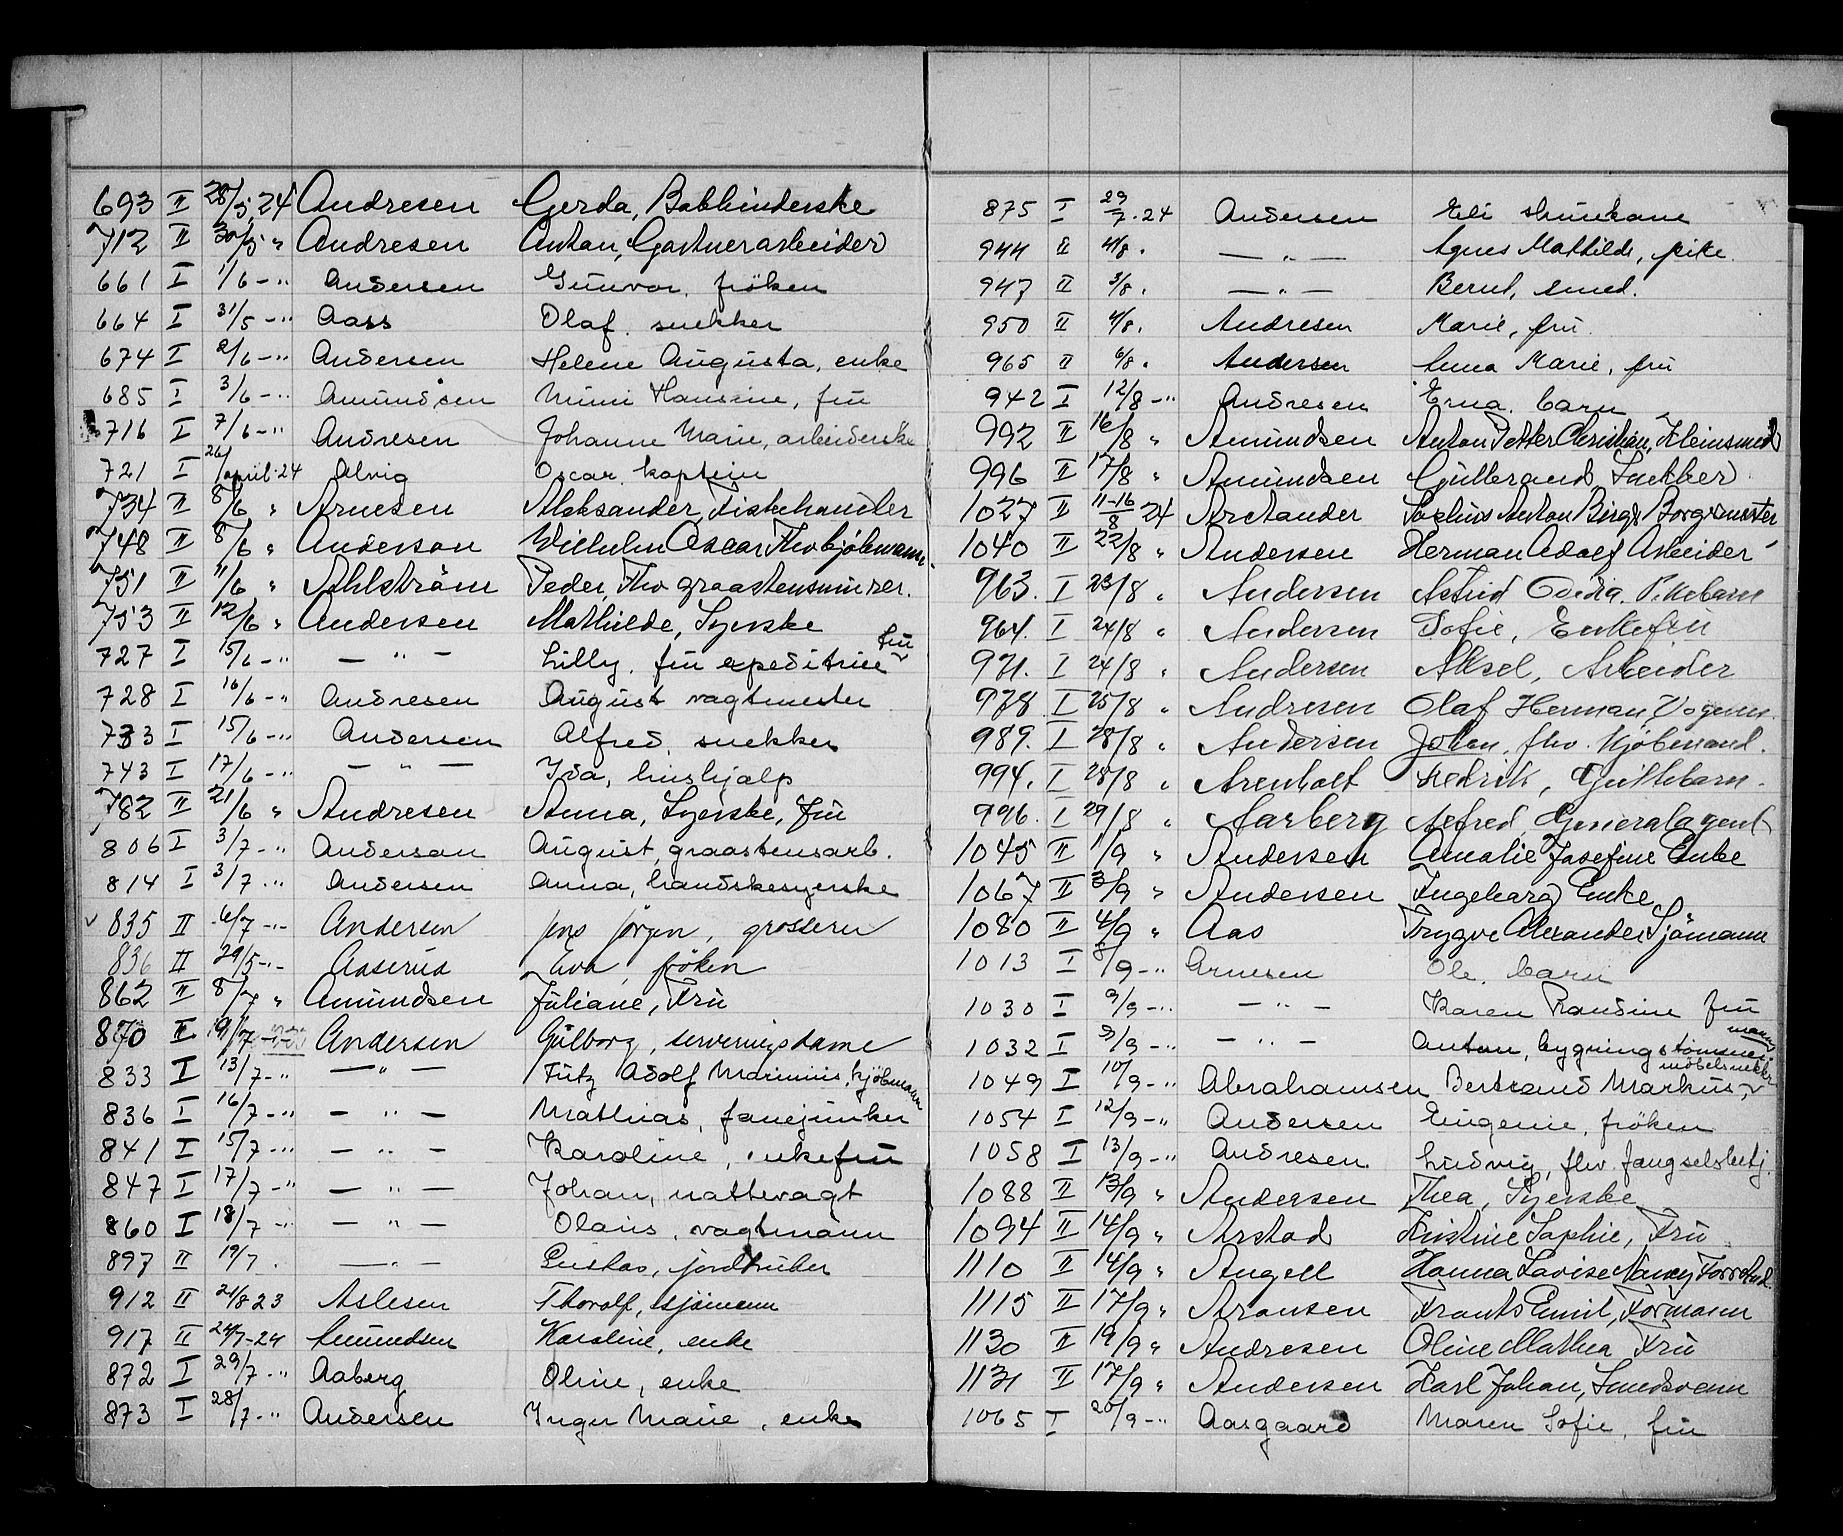 693 II 28/5.24 Andresen Gerda, Bokbinderske
712 II 30/5 " Andresen Anton, Gartnerarbeider
661 I 1/6 - " Andersen Gunvor. fröken
664 I 31/5 - " Aass Olaf. snekker
674 I 2/6 - " Andersen Helene Augusta, enke
685 I 3/6 - " Amundsen Mimi Hansine, fru
716 I 7/6 - " Andresen Johanne Marie, arbeiderske
721 I 26/april-24 Alvig Oscar. kaptein
734 II 8/6 " Arnesen Aleksander, Fiskehandler
748 II 8/6 " Anderson Wilhelm Oscar Fhv kjöbmann.
751 II 11/6 " Ahlström Peder, Fhv graastensmurer.
753 II 12/6 " Andersen Mathilde, Syerske
727 I 15/6 - " — " — Lilly. fru expeditrice fru
728 I 16/6 - " Andresen August vagtmester
733 I 15/6 - " Andersen Alfred, snekker
743 I 17/6 - " — " — Ida, hushjalp
782 II 21/6 " Andresen Anna, Syerske, fru
806 I 3/7 - " Anderson August, graastensarb.
814 I 3/7 - " Andersen Anna, handskesyerske
835 II 6/7 - " Andersen Jens Jörgen, grosserer
836 II 29/5 - " Aaserud Eva fröken
862 II 8/7 " Amundsen Juliane, Fru
870 II 19/7 Andersen Gulborg, serveringsdame
833 I 13/7 - " — " — Fritz Adolf Marinius, kjöbmann
836 I 16/7 - " — " — Mathias, fanejunker
841 I 15/7 - " — " — Karoline, enkefru
847 I 17/7 - " — " — Johan, nattevagt
860 I 18/7 - " — " — Olaus, vagtmann
897 II 19/7. — " — Gustav,
912 II 21/8 23 Aslesen Thorolf, sjömann
917 II 24/7-24 Amundsen Karoline, enke
872 I 29/7 - " Aaberg Oline, enke
873 I 28/7 - " Andersen Inger Marie, enke
875 I 29/7.24 Andersen Eli
944 II 4/8. — " — Agnes Mathilde, pike.
947 II 3/8. — " — Bernt, smed.
950 II 4/8. Andresen Marie, fru.
965 II 6/8. Andersen Anna Marie, fru
942 I 12/8 - " Andresen Erna. barn
992 II 16/8 " Amundsen Anton Petter Christian, Kleinsmed
996 II 17/8 " Amundsen Gulbrand Snekker
1027 II 11-16/8 24 Arctander Sophus Anton Birger Borgermester
1040 II 22/8 " Andersen Herman Adolf Arbeider
963. I 23/8 " Andersen Astrid Odidia. Pikebarn
964. I 24/8 " Andersen Sofie, Enkefru
971. I 24/8 " Andersen Aksel, Arbeider
978 I 25/8 " Andresen Olaf Herman,
989. I 28/8 " Andersen Johan, fhv. Kjöbmand.
994. I 28/8 " Arenholt Fredrik, Guttebarn.
996. I 29/8 " Aarberg Alfred, Generalagent
1045 II 1/9 " Andersen Amalie Josefine Enke
1067 II 3/9 " Andersen Ingeborg Enke
1080 II 4/9 " Aas Trygve Alexander Sjömann
1013 I 8/9 - " Arnesen Ole. barn
1030 I 9/9 - " — " — Karen Randine fru
1032 I 9/9 - " — " — Anton, bygningstömmermann
1049 I 10/9 - " Abrahamsen Bertrand Markus, möbelsnekker
1054 I 12/9 - " Andersen Eugenie, fröken
1058 I 13/9 - " Andresen Ludvig, fhv. fangselsbetj.
1088 II 13/9 " Andersen Thea, Syerske
1094 II 14/9 " Arstad Kristine Sophie, Fru
1110 II 14/9 " Angell Hanna Lovise Nancy
1115 II 17/9 " Aronsen Frants Emil, Formann
1130 II 19/9 " Andresen Oline Mathea Fru
1131 II 17/9 " Andersen Karl Johan, Smedsvenn
1065 I 20/9 - " Aasgaard Maren Sofie, fru